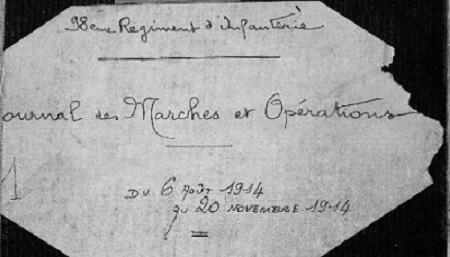 98eme Regiment d'Infanterie
ournal des Marches et Opérations
1
DU 6 AOÛT 1914
au 20 NOVEMBRE 1914